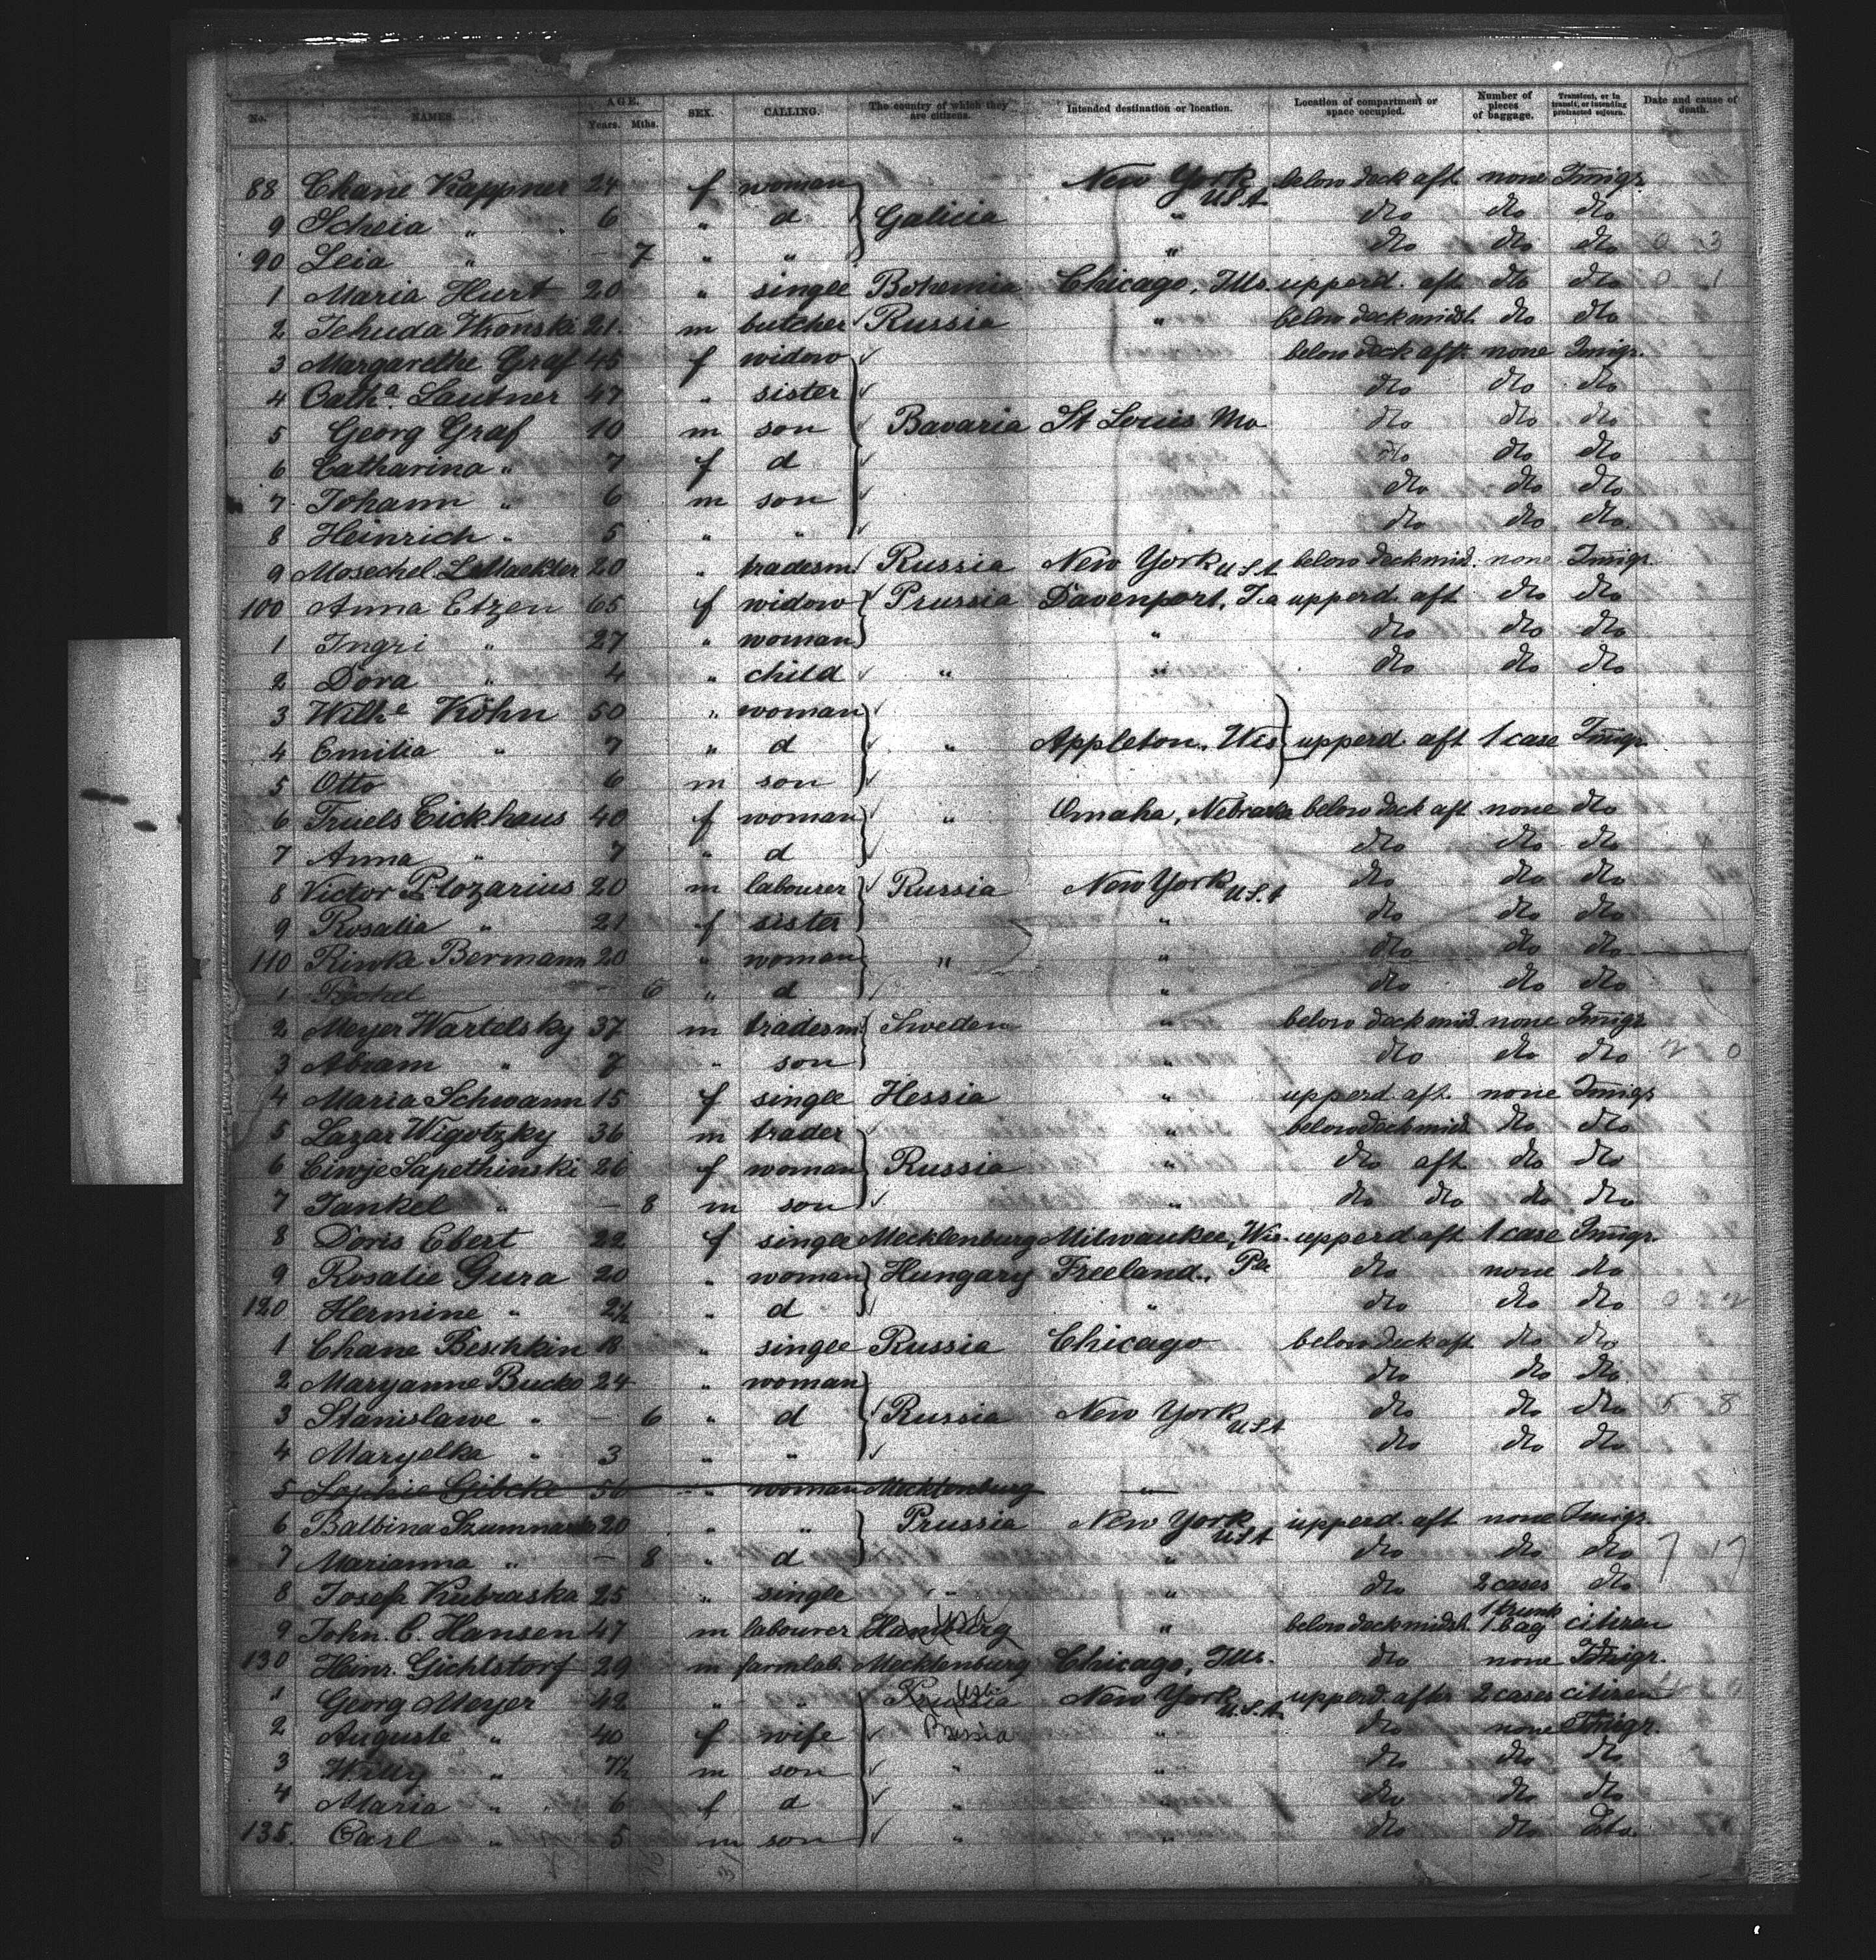 No. NAMES. AGE. Years. Mths. SEX. CALLING. The country of which they are citizens. Intended destination or location. Location of compartment or space occupied. Number of pieces of baggage. Transient, or in transit, or intending protracted sojourn. Date and cause of death.
88 Chane Kappner 24 f woman New York USA below deck aft none Immigr.
9 Scheia " 6 " d Galicia " dto dto dto
90 Leia " - 7 " " " dto dto dto 0 3
1 Maria Hurt 20 " single Bohemia Chicago, Ills. upperd. aft dto dto 0 1
2 Jehuda Wronski 21 m butcher Russia " below deck midst. dto dto
3 Margarethe Graf 45 f widow below deck aft none Immigr.
4 Cath.a Lautner 47 " sister dto dto dto
5 Georg Graf 10 m son Bavaria St Louis Mo dto dto dto
6 Catharina " 7 f d dto dto dto
7 Johann " 6 m son dto dto dto
8 Heinrich " 5 " " dto dto dto
9 Mosechel 20 " tradesm. Russia New York USA below deck mid. none Immigr.
100 Anna Etzen 65 f widow Prussia Davenport, Ia upperd. aft dto dto
1 Ingri " 27 " woman " dto dto dto
2 Dora " 4 " child " " dto dto dto
3 Wilh.e Köhn 50 " woman
4 Emilia " 7 " d " Appleton, Wis upperd aft 1 case Immigr.
5 Otto 6 m son
6 Truels Eickhaus 40 f woman " Omaha, Nebraska below deck aft none dto
7 Anna " 7 " d dto dto dto
8 Victor Plozarius 20 m labourer Russia New York U.S.A dto dto dto
9 Rosalia " 21 f sister " dto dto dto
110 Riwke Bermann 20 " woman " " dto dto dto
1 - 6 " d " dto dto dto
2 Meyer Wartelsky 37 m tradesm. Sweden " below deck mid. none Immigr.
3 Abram " 7 " son " dto dto dto 2 0
4 Maria Schwann 15 f single Hessia " upperd. aft. none Immigr.
5 Lazar Wigotzky 36 m trader " below deck mid dto dto
6 Ciwje Sapethinski 26 f woman Russia " dto aft dto dto
7 Jankel " - 8 m son " dto dto dto dto
8 Doris Ebert 22 f single Mecklenburg Milwaukee, Wis. upperd aft 1 case Immigr.
9 Rosalie Gura 20 " woman Hungary Freeland, Pa dto none dto
120 Hermine " 2½ " d " dto dto dto 0 2
1 Chane Beschkin 18 " single Russia Chicago below deck aft dto dto
2 Maryanne Bucko 24 " woman dto dto dto
3 Stanislawe " - 6 " d Russia New York USA dto dto dto 5 8
4 Maryelka " 3 " " dto dto dto
5 Sophie Gibcke 56 " woman Mecklenburg "
6 Balbina 20 " " Prussia New York USA upperd. aft none Immigr.
7 Marianna " - 8 " d " dto dto dto 7 17
8 Josefa Kubraska 25 " single " " dto 2 cases dto
9 John. C. Hansen 47 m labourer Hamburg USA " below deck midst 1 trunk 1 bag citizen
130 Heinr. Gichtstorf 29 m farmlab. Mecklenburg Chicago, Ills. dto none Immigr.
1 Georg Meyer 42 " " Prussia USA New York U.S.A upperd. after 2 cases citizen
2 Auguste " 40 f wife Prussia " dto none Immigr.
3 Willy " 7½ m son " " dto dto dto
4 Maria " 6 f d " dto dto dto
135 Carl " 5 m son " " dto dto dto